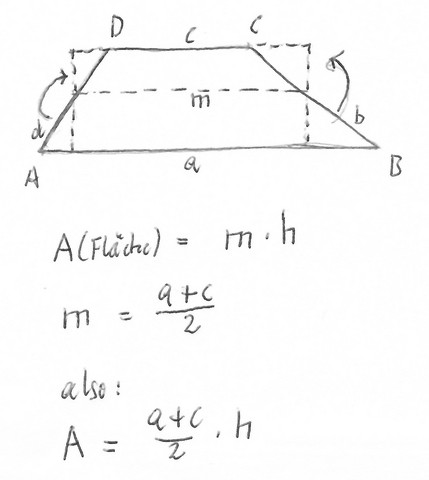 D c C
d m b
A a B
A(Fläche) = m · h
m = a+c/2
also:
A = a+c/2 · h